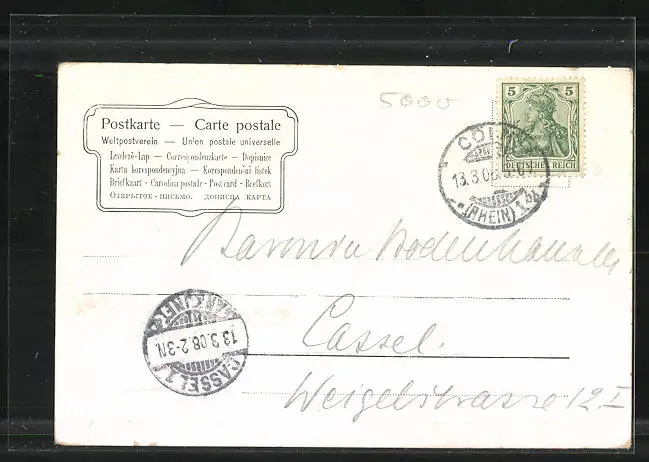 5000
Postkarte — Carte postale
Weltpostverein — Union postale universelle
Levelező-Lap — Correspondenzkarte — Dopisnice
Karta korespondencyjna — Korespondenční lístek
Briefkart - Cartolina postale - Post card - Brefkort
Открытое-письмо. дописна карта
5 5
DEUTSCHES REICH
CÖLN
13.3.08
(RHEIN) 1
Baronin Bodenhausen
Cassel.
Weigelstrasse 12 I
13.3.08.2-3N.
CASSEL 1